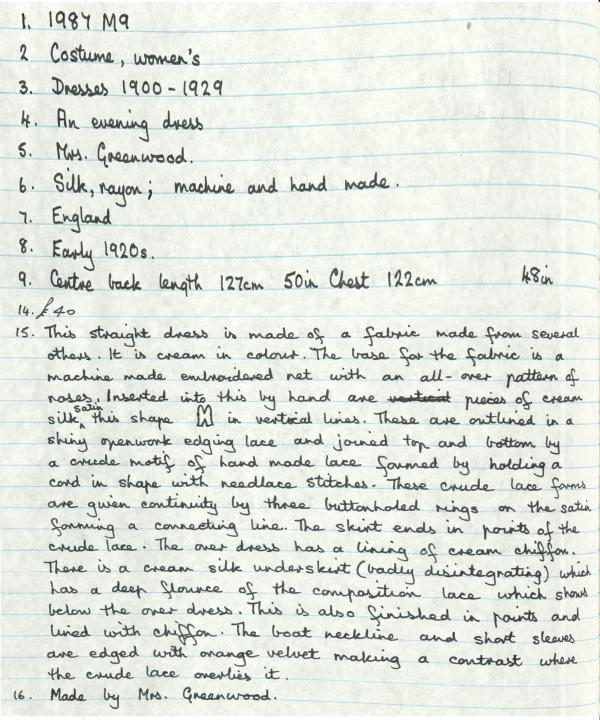 1. 1987 M9
2 Costume, women's
3. Dresses 1900 - 1929
4. An evening dress
5. Mrs. Greenwood.
6. Silk, rayon; machine and hand made.
7. England
8. Early 1920s.
9. Centre back length 127cm 50in Chest 122cm 48in
14. £40
15. This straight dress is made of a fabric made from several
others. It is cream in colour. The base for the fabric is a
machine made embroidered net with an all-over pattern of
roses. Inserted into this by hand are vertical pieces of cream
silk satin this shape in vertical lines. These are outlined in a
shiny openwork edging lace and joined top and bottom by
a crude motif of hand made lace formed by holding a
cord in shape with needlace stitches. These crude lace forms
are given continuity by three buttonholed rings on the satin
forming a connecting line. The skirt ends in points of the
crude lace. The over dress has a lining of cream chiffon.
There is a cream silk underskirt (badly disintegrating) which
has a deep flounce of the composition lace which shows
below the over dress. This is also finished in points and
lined with chiffon. The boat neckline and short sleeves
are edged with orange velvet making a contrast where
the crude lace overlies it.
16. Made by Mrs. Greenwood.